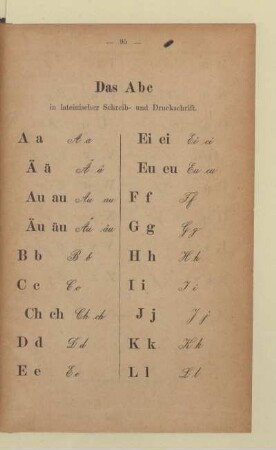 — 95 —
Das Abc
in lateinischer Schreib- und Druckschrift.
A a A a
Ä ä Ä ä
Au au Au au
Äu äu Äu äu
B b B b
C c C c
Ch ch Ch ch
D d D d
E e E e
Ei ei Ei ei
Eu eu Eu eu
F f F f
G g G g
H h H h
I i I i
J j J j
K k K k
L l L l